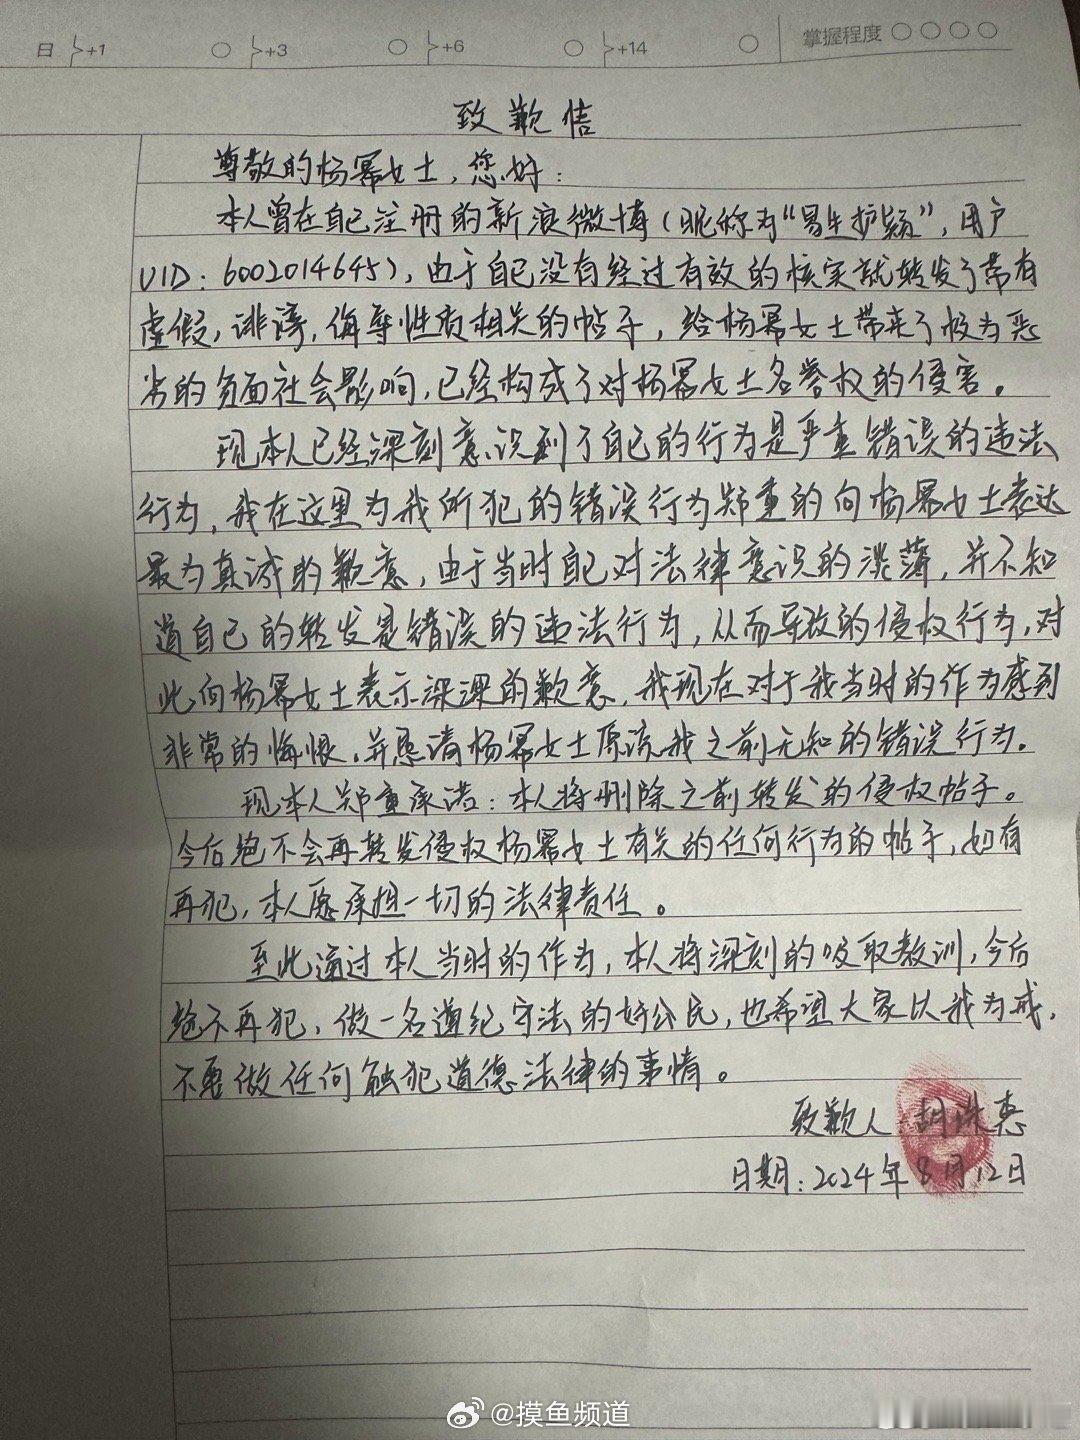 日 +1 +3 +6 +14 掌握程度
致歉信
尊敬的杨幂女士，您好：
本人曾在自己注册的新浪微博（昵称为“易生护颖”，用户
UID：6002014645），由于自己没有经过有效的核实就转发了带有
虚假，诽谤，侮辱性质相关的帖子，给杨幂女士带来了极为恶
劣的负面社会影响，已经构成了对杨幂女士名誉权的侵害。
现本人已经深刻意识到了自己的行为是严重错误的违法
行为，我在这里为我所犯的错误行为郑重的向杨幂女士表达
最为真诚的歉意，由于当时自己对法律意识的淡薄，并不知
道自己的转发是错误的违法行为，从而导致的侵权行为，对
此向杨幂女士表示深深的歉意，我现在对于我当时的作为感到
非常的悔恨，并恳请杨幂女士原谅我之前无知的错误行为。
现本人郑重承诺：本人将删除之前转发的侵权帖子。
今后绝不会再转发侵权杨幂女士有关的任何行为的帖子，如有
再犯，本人愿承担一切的法律责任。
至此通过本人当时的作为，本人将深刻的吸取教训，今后
绝不再犯，做一名遵纪守法的好公民，也希望大家以我为戒，
不要做任何触犯道德法律的事情。
致歉人 胡珠惠
日期：2024年8月12日
@摸鱼频道